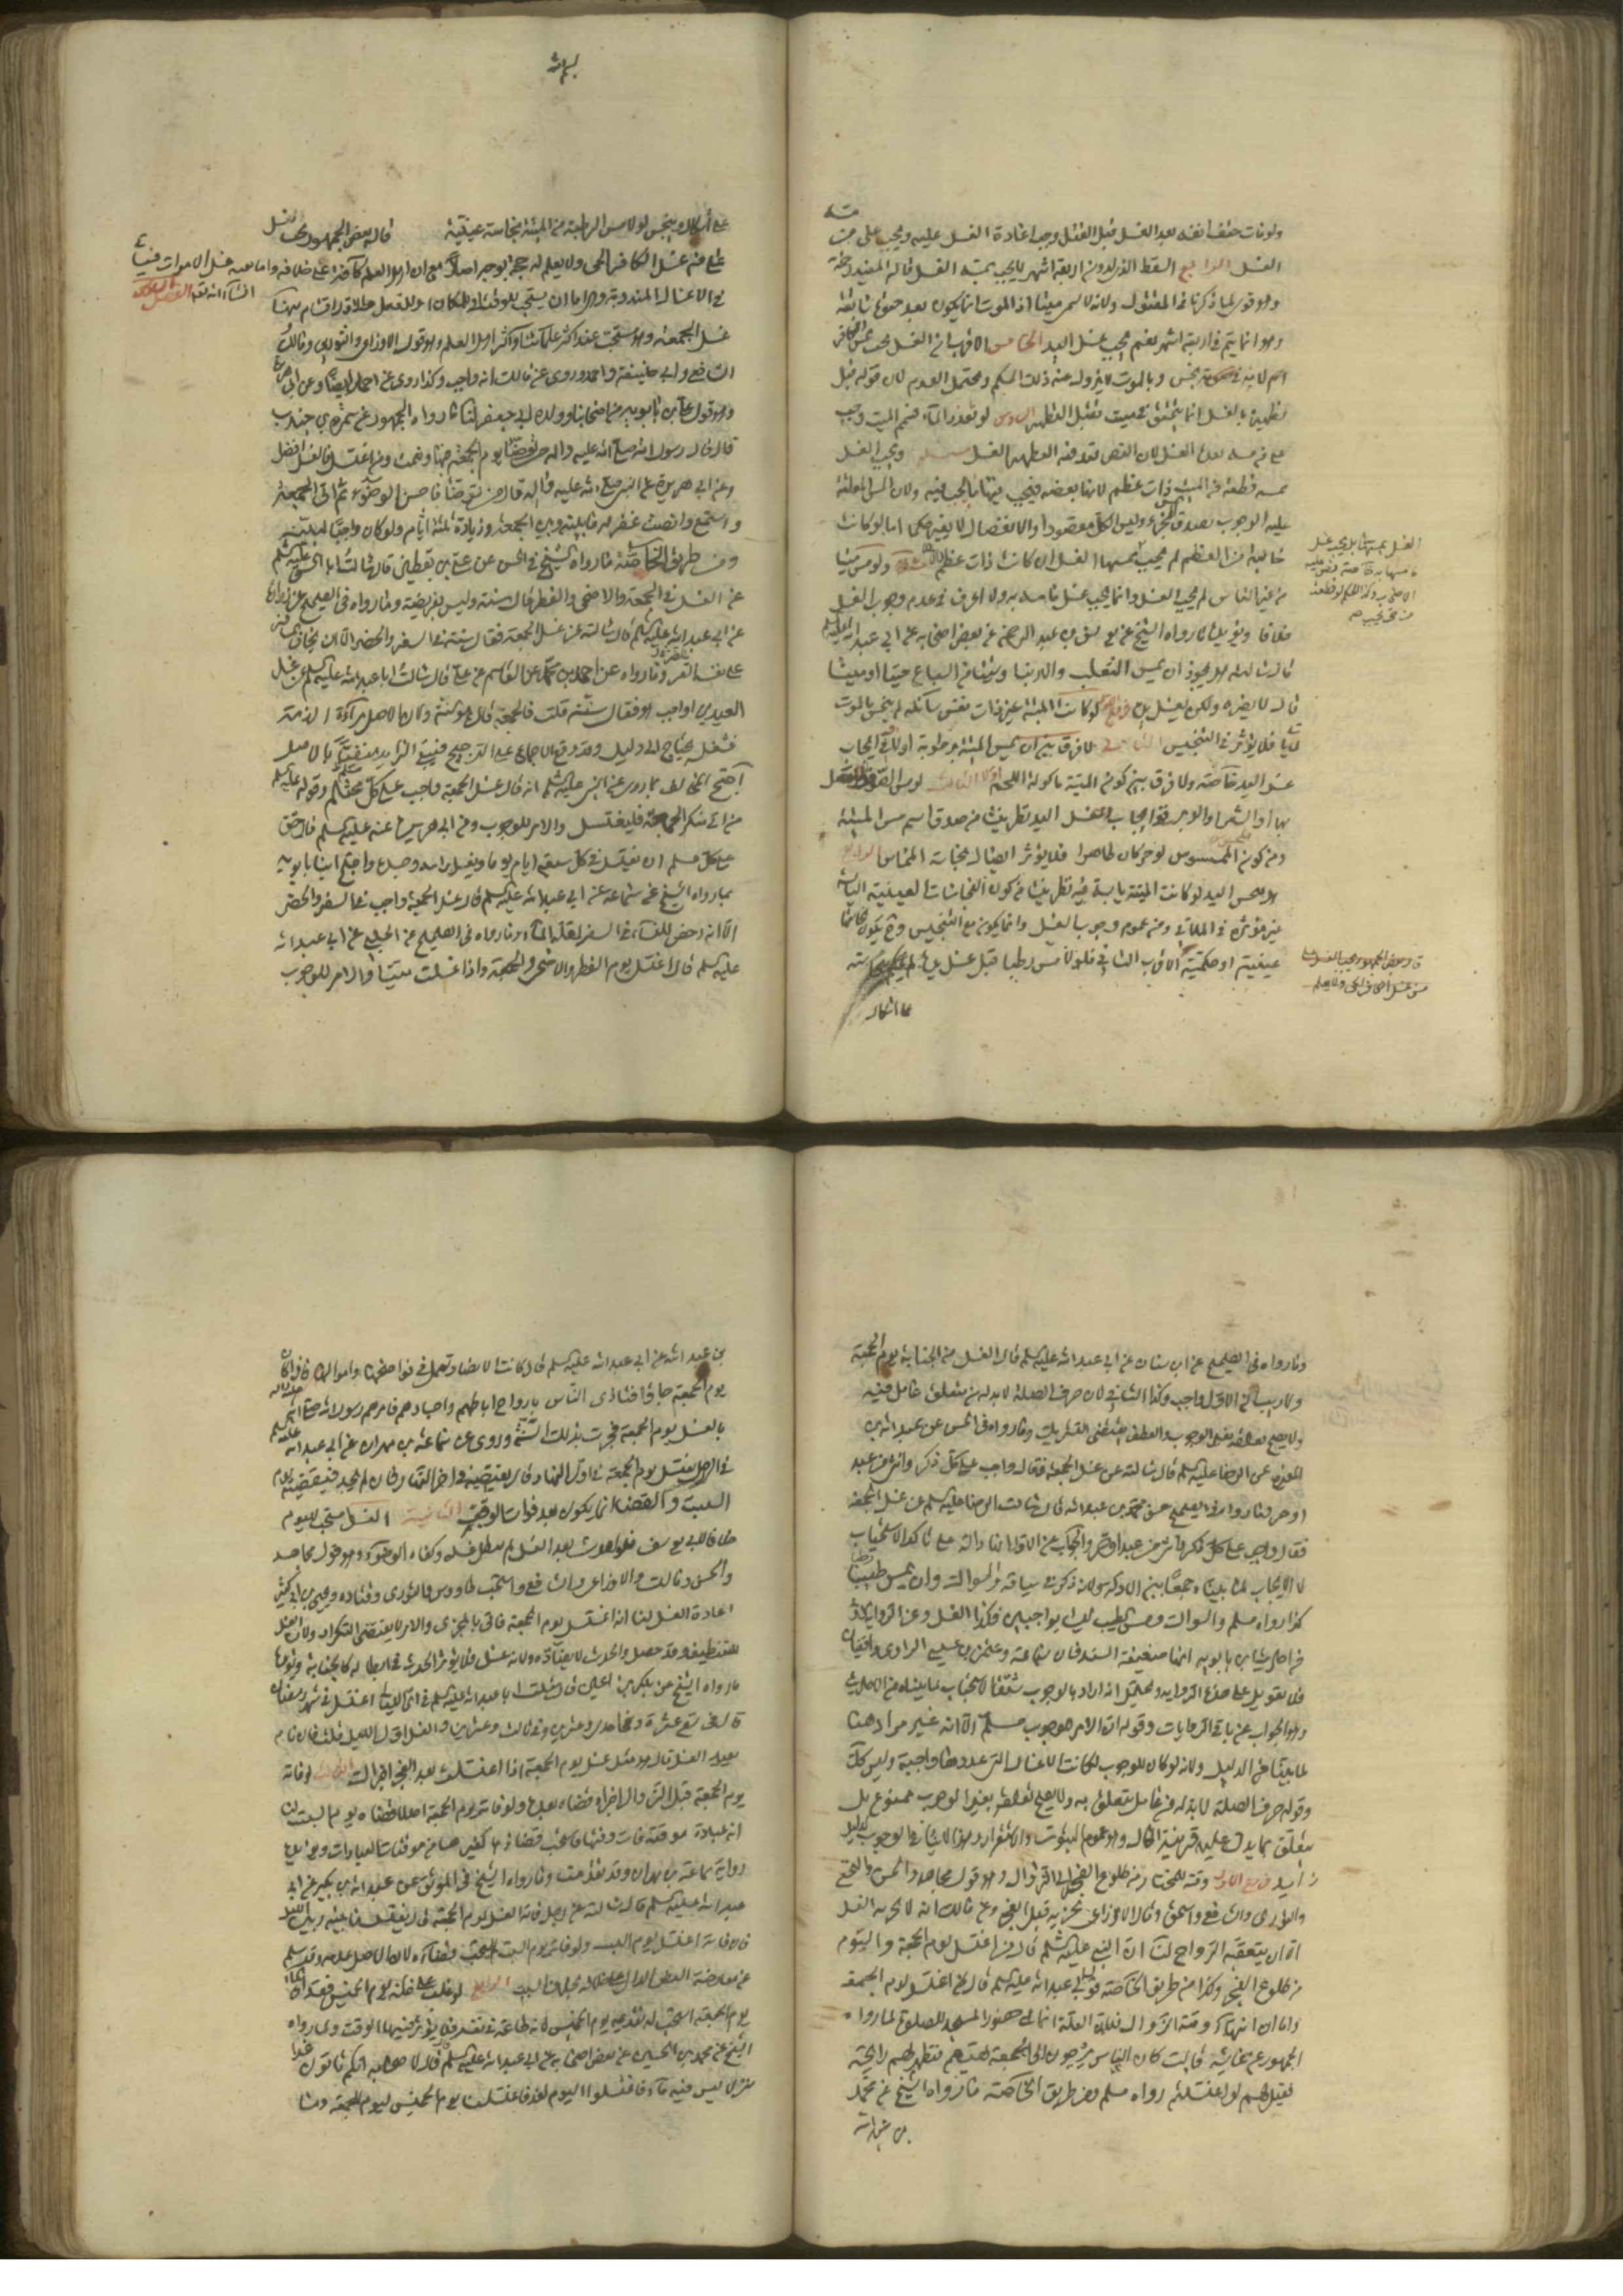 ولو مات حتف انفه بعد الغسل قبل القتل وجب اعادة الغسل عليه ويجب على من مسه
الغسل الرابع السقط الذي لدون اربعة اشهر لا يجب بمسه الغسل قاله المفيد
وهو قوي لما ذكرنا في المقتول ولانه لا يسمى ميتا اذ الموت انما يكون بعد حيوة سابقة
وهو انما يتم في اربعة اشهر نعم يجب غسل اليد الخامس الاقرب ان الغسل يجب بمس الكافر
لانه في نجس وبالموت لا يزول عنه ذلك الحكم ويحتمل العدم لان قوله قبل
تطهيره بالغسل انما يتحقق في ميت يقبل التطهير السادس لو تعذر الماء فيمم الميت وجب
على من مسه بعده الغسل لان النص قيد فيه التطهير بالغسل ويجب الغسل
بمس قطعة من الميت ذات عظم لانها بعضه فيجب فيها ما يجب فيه ولان المس المعلق
عليه الوجوب يصدق بالجزء وليس الكل مقصودا والانفصال لا يغير حكما اما لو كانت
خالية من العظم لم يجب بمسها الغسل ولو مس ميتا
من غير الناس لم يجب الغسل وانما يجب غسل ما مسه به ولا اعرف في عدم وجوب الغسل
خلافا ويؤيده ما رواه الشيخ عن يونس بن عبد الرحمن عن بعض اصحابه عن ابي عبد الله عليه السلام
قال سالته هل يجوز ان يمس الثعلب والارنب او شيئا من السباع حيا او ميتا
قال لا يضره ولكن يغسل يده فروع لو كانت الميتة غير ذات نفس سائلة لم ينجس بالموت
فلا يؤثر في التنجيس الثاني لا فرق بين ان يمس الميتة برطوبة او لا في ايجاب
غسل اليد خاصة ولا فرق بين كون الميتة ماكولة اللحم او لا الثالث لو مس الصوف المتصل
بها او الشعر او الوبر ففي ايجاب غسل اليد نظر ينشا من صدق اسم مس الميتة
ومن كون الممسوس لو جز كان طاهرا فلا يؤثر اتصاله نجاسة المماس الرابع
هل ينجس اليد لو كانت الميتة يابسة فيه نظر ينشا من كون النجاسات العينية اليابسة
غير مؤثرة في الملاقي ومن عموم وجوب الغسل وانما يكون مع التنجيس
عينية او حكمية الاقرب الثاني فلو لامس رطبا قبل غسل يده لم يحكم بنجاسته
على اشكال
بسم الله
على اشكال وينجس لو لامس الرطبة من الميتة نجاسة عينية قال بعض الجمهور يجب الغسل
على من غسل الكافر الحي ولا نعلم له حجة يوجب اصلا مع ان اهل العلم كافة على خلافه واما بقية غسل الاموات فسياتي
ان شاء الله تعالى الفصل
في الاغسال المندوبة وهي اما ان يستحب للوقت او للمكان او للفعل فالاول اقسام منها
غسل الجمعة وهو مستحب عند اكثر علمائنا واكثر اهل العلم وهو قول الاوزاعي والثوري ومالك
والشافعي وابي حنيفة واحمد وروي عن مالك انه واجب وكذا روي عن احمد ايضا وعن ابي هريرة
وهو قول علي بن بابويه من اصحابنا وولده ابي جعفر لنا ما رواه الجمهور عن سمرة بن جندب
قال قال رسول الله صلى الله عليه واله من توضا يوم الجمعة فبها ونعمت ومن اغتسل فالغسل افضل
وعن ابي هريرة عن النبي صلى الله عليه واله قال من توضا فاحسن الوضوء ثم اتى الجمعة
واستمع وانصت غفر له ما بينه وبين الجمعة وزيادة ثلثة ايام ولو كان واجبا لبينه
ومن طريق الخاصة ما رواه الشيخ في الحسن عن علي بن يقطين قال سالت ابا الحسن عليه السلم
عن الغسل في الجمعة والاضحى والفطر قال سنة وليس بفريضة وما رواه في الصحيح عن زرارة
عن ابي عبد الله عليه السلم قال سالته عن غسل الجمعة فقال سنة في السفر والحضر الا ان يخاف
على نفسه القر وما رواه عن احمد بن محمد عن القاسم عن علي قال سالت ابا عبد الله عليه السلم عن غسل
العيدين اواجب هو فقال سنة قلت فالجمعة قال هو سنة ولان الاصل براءة الذمة
فشغلها يحتاج الى دليل وقد وقع الاجماع على الترجيح فيبقى الزايد منفيا بالاصل
احتج المخالف بما روي عن النبي عليه السلم انه قال غسل الجمعة واجب على كل محتلم وقوله عليه السلم
من اتى منكم الجمعة فليغتسل والامر للوجوب وعن ابي هريرة عنه عليه السلم قال حق
على كل مسلم ان يغتسل في كل سبعة ايام يوما ويغسل راسه وجسده واحتج ابنا بابويه
بما رواه الشيخ عن سماعة عن ابي عبد الله عليه السلم قال غسل الجمعة واجب في السفر والحضر
الا انه رخص للنساء في السفر لقلة الماء وما رواه في الصحيح عن الحلبي عن ابي عبد الله
عليه السلم قال اغتسل يوم الفطر والاضحى والجمعة واذا غسلت ميتا والامر للوجوب
وما رواه في الصحيح عن ابن سنان عن ابي عبد الله عليه السلم قال الغسل من الجنابة ويوم الجمعة
ولا ريب ان الاول واجب وكذا الثاني ولان حرف الصلة لا بد له من متعلق عامل فيه
ولا يصح تعلقه بغير الوجوب والعطف يقتضي التشريك وما رواه في الحسن عن عبد الله بن
المغيرة عن الرضا عليه السلم قال سالته عن غسل الجمعة فقال واجب على كل ذكر وانثى من عبد
او حر وما رواه في الصحيح عن محمد بن عبد الله قال سالت الرضا عليه السلم عن غسل الجمعة
فقال واجب على كل ذكر وانثى من عبد او حر والجواب عن الاول انها دالة على تاكد الاستحباب
لا الايجاب لما بيناه جمعا بين الادلة ولانه ذكر في سياقه والسواك وان يمس طيبا
كذا رواه مسلم والسواك ومس الطيب ليسا بواجبين فكذا الغسل وعن الرواية
من احاديث ابن بابويه انها ضعيفة السند فان سماعة وعثمن بن عيسى الراوي واقفيان
فلا تعويل على هذه الرواية ويحتمل انه اراد بالوجوب شدة الاستحباب لما بيناه من الاحاديث
وهو الجواب عن باقي الروايات وقوله ان الامر للوجوب مسلم الا انه غير مراد هنا
لما بينا من الدليل ولانه لو كان للوجوب لكانت الاغسال التي عددها واجبة وليس كذلك
وقوله حرف الصلة لا بد له من عامل يتعلق به ولا يصح تعلقه بغير الوجوب ممنوع بل
يتعلق بما يدل عليه قرينة الحال وهو عموم الثبوت والاستقرار وهذا لا ينافي الوجوب لدليل
زايد فروع الاول وقته للمختار من طلوع الفجر الى الزوال وهو قول مجاهد والحسن والنخعي
والثوري والشافعي واسحق وقال الاوزاعي يجزيه قبل الفجر وعن مالك انه لا يجزيه الغسل
الا ان يتعقبه الرواح لنا ان النبي عليه السلم قال من اغتسل يوم الجمعة واليوم
من طلوع الفجر وكذا من طريق الخاصة قول ابي عبد الله عليه السلم قال من اغتسل يوم الجمعة
واما ان انتهاء وقته الزوال فلان العلة انما هي حضور المسجد للصلوة لما رواه
الجمهور عن عائشة قالت كان الناس يروحون الى الجمعة بهيئتهم فتظهر لهم رايحة
فقيل لهم لو اغتسلتم رواه مسلم ومن طريق الخاصة ما رواه الشيخ عن محمد
بن عبد الله
بن عبد الله عن ابي عبد الله عليه السلم قال كانت الانصار تعمل في نواضحها واموالها فاذا كان
يوم الجمعة جاؤا فتاذى الناس بارواح اباطهم واجسادهم فامرهم رسول الله صلى الله عليه واله
بالغسل يوم الجمعة فجرت بذلك السنة وروي عن سماعة بن مهران عن ابي عبد الله عليه السلم
في الرجل لا يغتسل يوم الجمعة في اول النهار قال يقضيه في اخر النهار فان لم يجد فليقضه يوم
السبت والقضاء انما يكون بعد فوات الوقت الثانية الغسل مستحب لليوم
خلافا لابي يوسف فلو احدث بعد الغسل لم يبطل غسله وكفاه الوضوء وهو قول مجاهد
والحسن ومالك والاوزاعي والشافعي واستحب طاوس والثوري وقتادة ويحيى بن ابي كثير
اعادة الغسل لنا انه اغتسل يوم الجمعة فاتى بالمجزي والامر لا يقتضي التكرار ولان الغسل
للتنظيف وقد حصل والحدث لا يضاده ولانه غسل فلا يؤثر الحدث في ابطاله كالجنابة ويؤيده
ما رواه الشيخ عن بكير بن اعين قال سالت ابا عبد الله عليه السلم في اي الليالي اغتسل في شهر رمضان
قال في تسع عشرة وفي احدى وعشرين وفي ثلث وعشرين والغسل اول الليل قلت فان نام
بعد الغسل قال هو مثل غسل يوم الجمعة اذا اغتسلت بعد الفجر اجزاك الثالث لو فاته
يوم الجمعة قبل الزوال اجزاه قضاه بعده ولو فاته يوم الجمعة اصلا قضاه يوم السبت لنا
انه عبادة موقتة فات وقتها فاستحب قضاؤها كغيرها من موقتات العبادات ويؤيده
رواية سماعة بن مهران وقد تقدمت وما رواه الشيخ في الموثق عن عبد الله بن بكير عن ابي
عبد الله عليه السلم قال سالته عن رجل فاته الغسل يوم الجمعة قال يغتسل ما بينه وبين الليل
فان فاته اغتسل يوم السبت ولو فاته يوم السبت لم يستحب قضاؤه لان الاصل عدمه وقد سلم
عن معارضة النص الدال على السبت الرابع لو غلب على ظنه يوم الخميس فقدان الماء
يوم الجمعة استحب له تقديمه يوم الخميس لانه طاعة في نفسه فلا يؤثر فيها الوقت ولما رواه
الشيخ عن محمد بن الحسين عن بعض اصحابه عن ابي عبد الله عليه السلم قال قال لاصحابه انكم تاتون غدا
منزلا ليس فيه ماء فاغتسلوا اليوم لغد فاغتسلنا يوم الخميس ليوم الجمعة وما